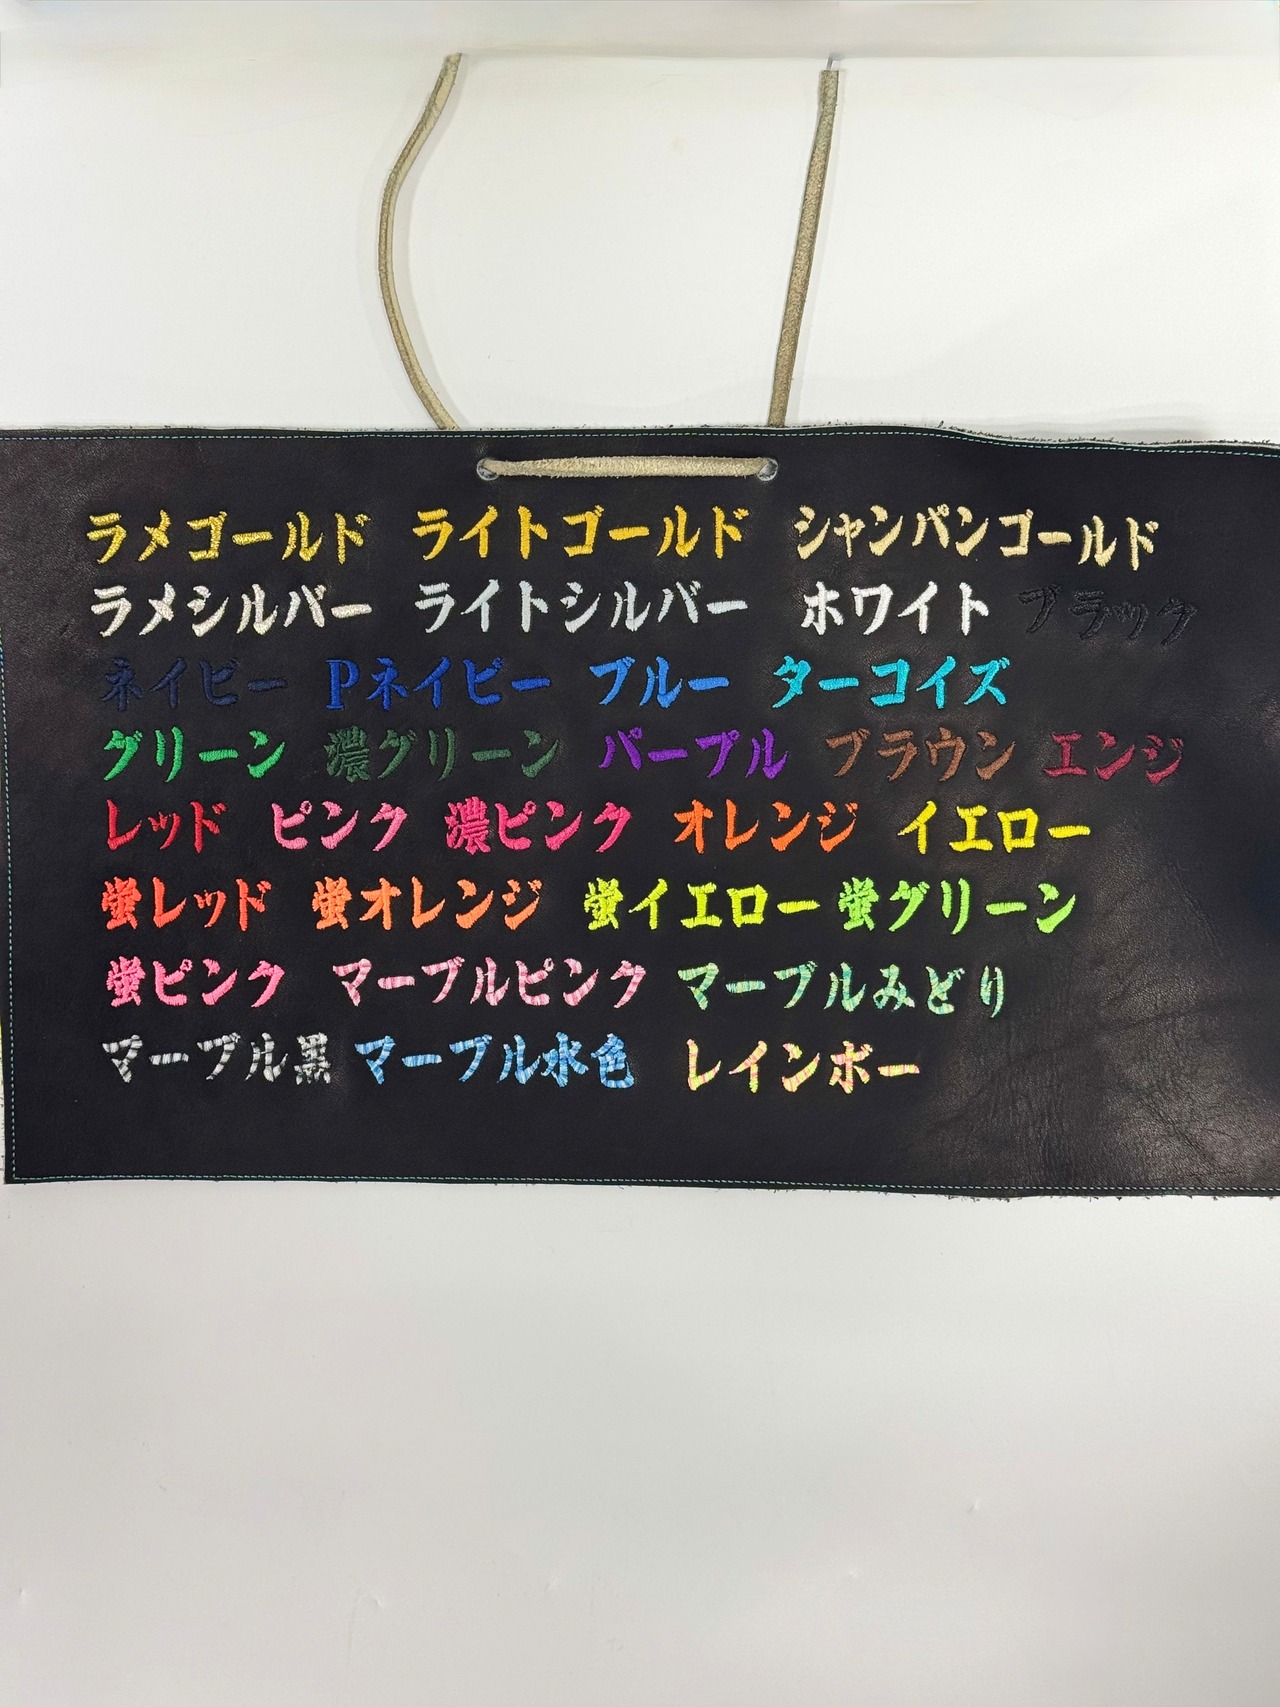 ラメゴールド ライトゴールド シャンパンゴールド
ラメシルバー ライトシルバー ホワイト ブラック
ネイビー Pネイビー ブルー ターコイズ
グリーン 濃グリーン パープル ブラウン エンジ
レッド ピンク 濃ピンク オレンジ イエロー
蛍レッド 蛍オレンジ 蛍イエロー 蛍グリーン
蛍ピンク マーブルピンク マーブルみどり
マーブル黒 マーブル水色 レインボー